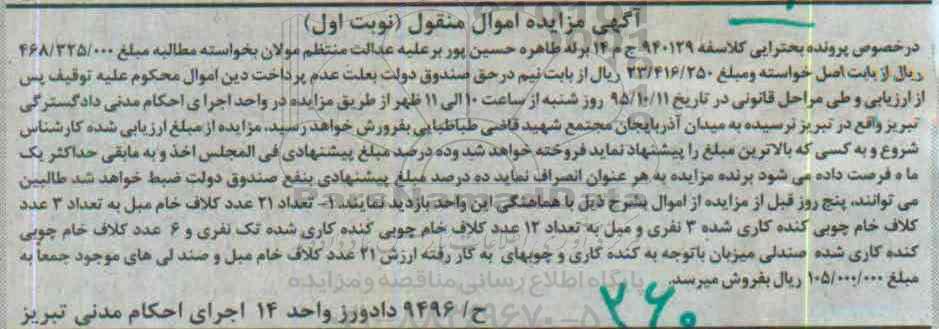 آگهی مزایده اموال منقول (نوبت اول)
درخصوص پرونده بحترایی کلاسه ۹۴۰۱۲۹ ج م ۱۴ برله طاهره حسین پور بر علیه عدالت منتظم مولان بخواسته مطالبه مبلغ ۴۶۸/۳۲۵/۰۰۰
ریال از بابت اصل خواسته ومبلغ ۲۳/۴۱۶/۲۵۰ ریال از بابت نیم درحق صندوق دولت بعلت عدم پرداخت دین اموال محکوم علیه توقیف پس
از ارزیابی و طی مراحل قانونی در تاریخ ۹۵/۱۰/۱۱ روز شنبه از ساعت ۱۰ الی ۱۱ ظهر از طریق مزایده در واحد اجرا ی احکام مدنی دادگستری
تبریز واقع در تبریز نرسیده به میدان آذربایجان مجتمع شهید قاضی طباطبایی بفرورش خواهد رسید، مزایده از مبلغ ارزیابی شده کارشناس
شروع و به کسی که بالاترین مبلغ را پیشنهاد نماید فروخته خواهد شد وده درصد مبلغ پیشنهادی فی المجلس اخذ و به مابقی حداکثر یک
ما ه فرصت داده می شود برنده مزایده به هر عنوان انصراف نماید ده درصد مبلغ پیشنهادی بنفع صندوق دولت ضبط خواهد شد طالبین
می توانند، پنج روز قبل از مزایده از اموال بشرح ذیل با هماهنگی این واحد بازدید نمایند.۱- تعداد ۲۱ عدد کلاف خام مبل به تعداد ۳ عدد
کلاف خام چوبی کنده کاری شده ۳ نفری و مبل به تعداد ۱۲ عدد کلاف خام چوبی کنده کاری شده تک نفری و ۶ عدد کلاف خام چوبی
کنده کاری شده صندلی میزبان باتوجه به کنده کاری و چوبهای به کار رفته ارزش ۲۱ عدد کلاف خام مبل و صند لی های موجود جمعا به
مبلغ ۱۰۵/۰۰۰/۰۰۰ ریال بفروش میرسد.
پایگاه اطلاع رسانی مناقصه و مزایده
ح/ ۹۴۹۶ دادورز واحد ۱۴ اجرای احکام مدنی تبریز
۲۶۰